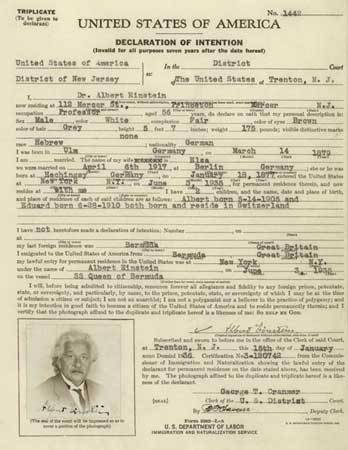 TRIPLICATE
(To be given to declarant)
No. 1442
UNITED STATES OF AMERICA
DECLARATION OF INTENTION
(Invalid for all purposes seven years after the date hereof)
United States of America In the District Court
District of New Jersey of The United States at Trenton, N. J.
I, Dr. Albert Einstein
now residing at 112 Mercer St., Princeton Mercer N.J.
occupation Professor, aged 56 years, do declare on oath that my personal description is:
Sex Male, color White complexion Fair color of eyes Brown
color of hair Grey, height 5 feet 7 inches; weight 175 pounds; visible distinctive marks
none
race Hebrew; nationality German
I was born in Ulm Germany, on March 14 1879
I am married. The name of my wife is Elsa
we were married on April 6th 1917, at Berlin Germany; she or he was
born at Hechingen Germany, on January 18, 1877, entered the United States
at New York N.Y., on June 3, 1935, for permanent residence therein, and now
resides at with me. I have 2 children, and the name, date and place of birth,
and place of residence of each of said children are as follows: Albert born 5-14-1905 and
Eduard born 6-28-1910 both born and reside in Switzerland
I have not heretofore made a declaration of intention: Number, on
at
my last foreign residence was Bermuda Great Britain
I emigrated to the United States of America from Bermuda Great Britain
my lawful entry for permanent residence in the United States was at New York N.Y.
under the name of Albert Einstein, on June 3, 1935
on the vessel SS Queen of Bermuda
I will, before being admitted to citizenship, renounce forever all allegiance and fidelity to any foreign prince, potentate,
state, or sovereignty, and particularly, by name, to the prince, potentate, state, or sovereignty of which I may be at the time
of admission a citizen or subject; I am not an anarchist; I am not a polygamist nor a believer in the practice of polygamy; and
it is my intention in good faith to become a citizen of the United States of America and to reside permanently therein; and I
certify that the photograph affixed to the duplicate and triplicate hereof is a likeness of me: SO HELP ME GOD.
Albert Einstein
Subscribed and sworn to before me in the office of the Clerk of said Court,
at Trenton, N. J. this 15th day of January
anno Domini 1936. Certification No. 3-120742 from the Commissioner
of Immigration and Naturalization showing the lawful entry of the
declarant for permanent residence on the date stated above, has been received
by me. The photograph affixed to the duplicate and triplicate hereof is a likeness
of the declarant.
George T. Cranmer
[SEAL] Clerk of the U. S. District Court.
By Deputy Clerk.
Albert Einstein
U. S. DEPARTMENT OF LABOR
IMMIGRATION AND NATURALIZATION SERVICE